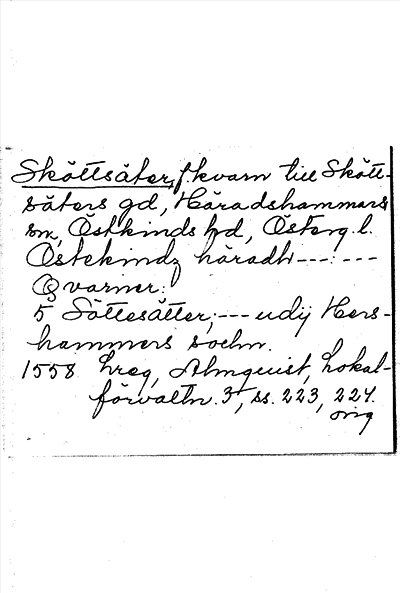 Sköttsäter, f. kvarn till Skött-
säters gd, Häradshammars
sn, Östkinds hd, Österg. l.
Östekindz häradh ---:---
Qvarner:
5 Söttesätter; --- udij Hers-
hammers sochn.
1558 hreg, Almquist, Lokal-
förvaltn. 3, ss. 223, 224.
orig